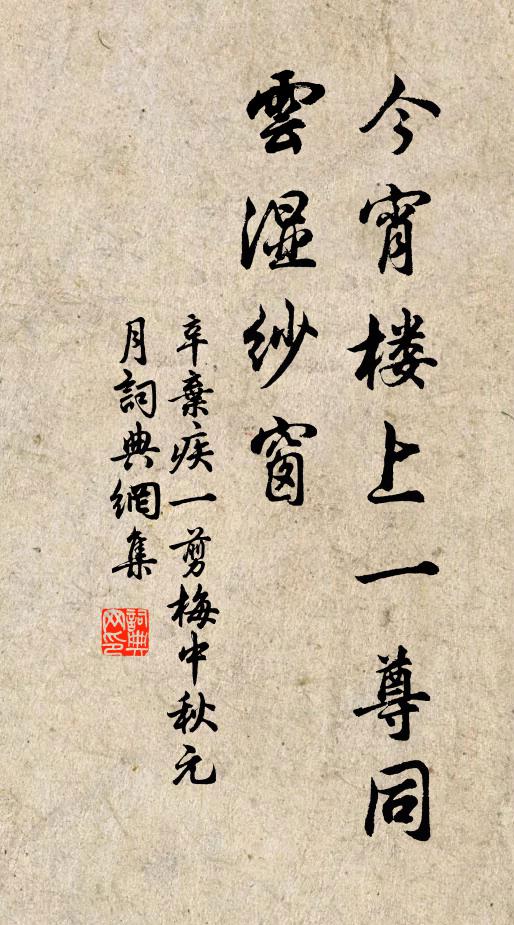 今宵楼上一尊同
雲湿紗窗
辛棄疾一剪梅中秋元
月詞典網集
詞典网印